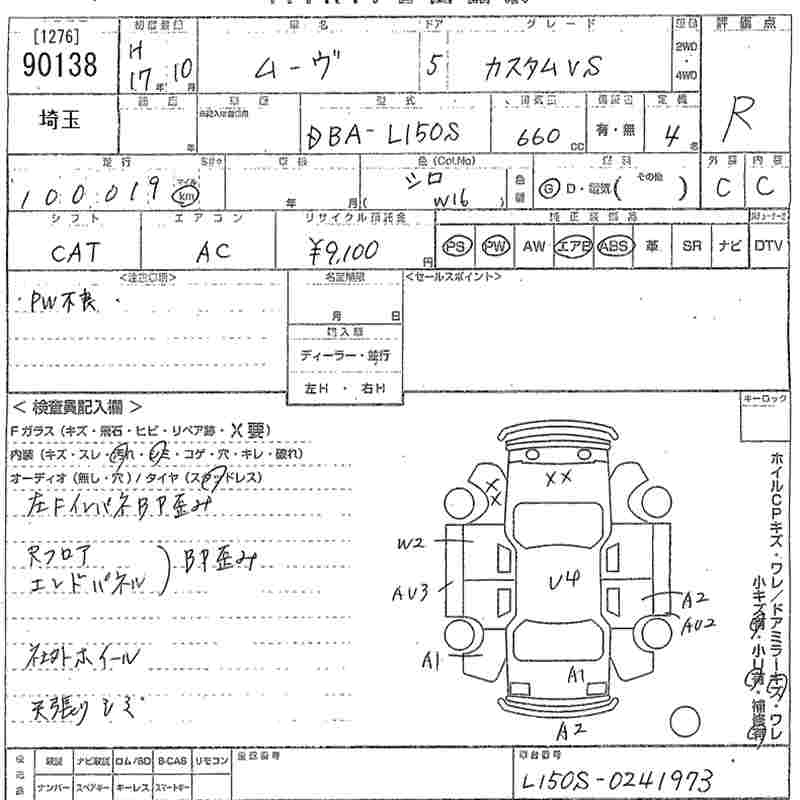 [1276]
90138
初度登録
車名
ドア
グレード
評価点
H
17年 10月
ムーヴ
5
カスタムVS
2WD
・
4WD
R
埼玉
年
型式
定員
DBA-L150S
660 cc
有・無
4名
走行
車検
色(Col.No)
燃料
外装
内装
100019
マイル
km
年
月
シロ
( W16 )
G D・電気( その他 )
C
C
シフト
エアコン
リサイクル預託金
純正装備品
CAT
AC
¥9,100円
PS
PW
AW
エアB
ABS
革
SR
ナビ
DTV
<注意事項>
名変期限
<セールスポイント>
・PW不良・
月 日
輸入車
ディーラー・並行
左H・右H
キーロック
<検査員記入欄>
Fガラス(キズ・飛石・ヒビ・リペア跡・X要)
内装(キズ・スレ・汚れ・シミ・コゲ・穴・キレ・破れ)
オーディオ(無し・穴)/タイヤ(スタッドレス)
左Fインパネ BP歪み
Rフロア
エンドパネル
BP歪み
社外ホイール
天張りシミ
XX
X
X
W2
U4
AU3
A2
AU2
A1
A1
A2
ホイルCPキズ・ワレ/ドアミラーキズ・ワレ
小キズ有・小U有・補修有
ナビ取説
ロム/SD
B-CAS
リモコン
ナンバー
スペアキー
キーレス
スマートキー
車台番号
L150S-0241973